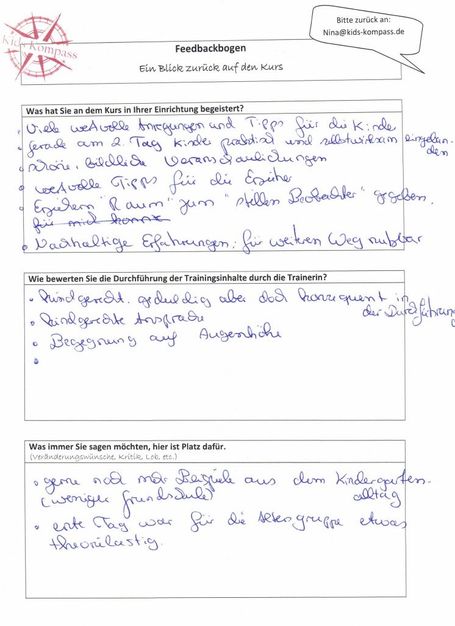 Kids Kompass
Bitte zurück an:
Nina@kids-kompass.de
Feedbackbogen
Ein Blick zurück auf den Kurs
Was hat Sie an dem Kurs in Ihrer Einrichtung begeistert?
• Viele wertvolle Anregungen und Tipps für die Kinder
• gerade am 2. Tag Kinder praktisch und selbstwirksam eingebunden
• schöne, bildliche Veranschaulichungen
• wertvolle Tipps für die Erzieher
• Erziehern "Raum" zum "stillen Beobachter" gegeben.
für mich
• Nachhaltige Erfahrungen, für weiteren Weg nutzbar
Wie bewerten Sie die Durchführung der Trainingsinhalte durch die Trainerin?
• kindgerecht, geduldig aber doch konsequent in der Durchführung
• kindgerechte Ansprache
• Begegnung auf Augenhöhe
•
Was immer Sie sagen möchten, hier ist Platz dafür.
(Veränderungswünsche, Kritik, Lob, etc.)
• gerne noch mehr Beispiele aus dem Kindergarten-
(weniger Grundschule) alltag
• erste Tag war für die Altersgruppe etwas
theorielastig.